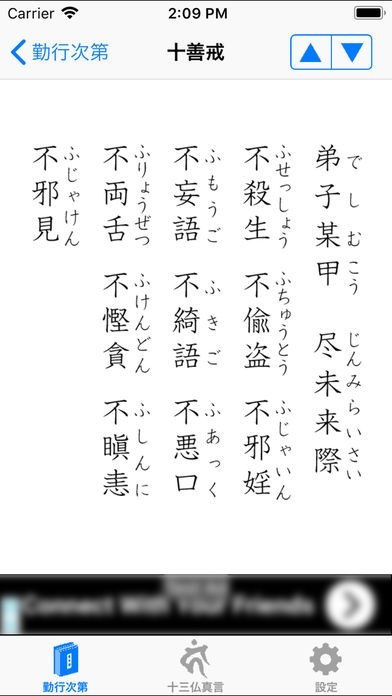 Carrier 2:09 PM
勤行次第 十善戒
弟子某甲 尽未来際
でしむこう じんみらいさい
不殺生 不偸盗 不邪婬
ふせっしょう ふちゅうとう ふじゃいん
不妄語 不綺語 不悪口
ふもうご ふきご ふあっく
不両舌 不慳貪 不瞋恚
ふりょうぜつ ふけんどん ふしんに
不邪見
ふじゃけん
Connect With Your Friends
勤行次第 十三仏真言 設定